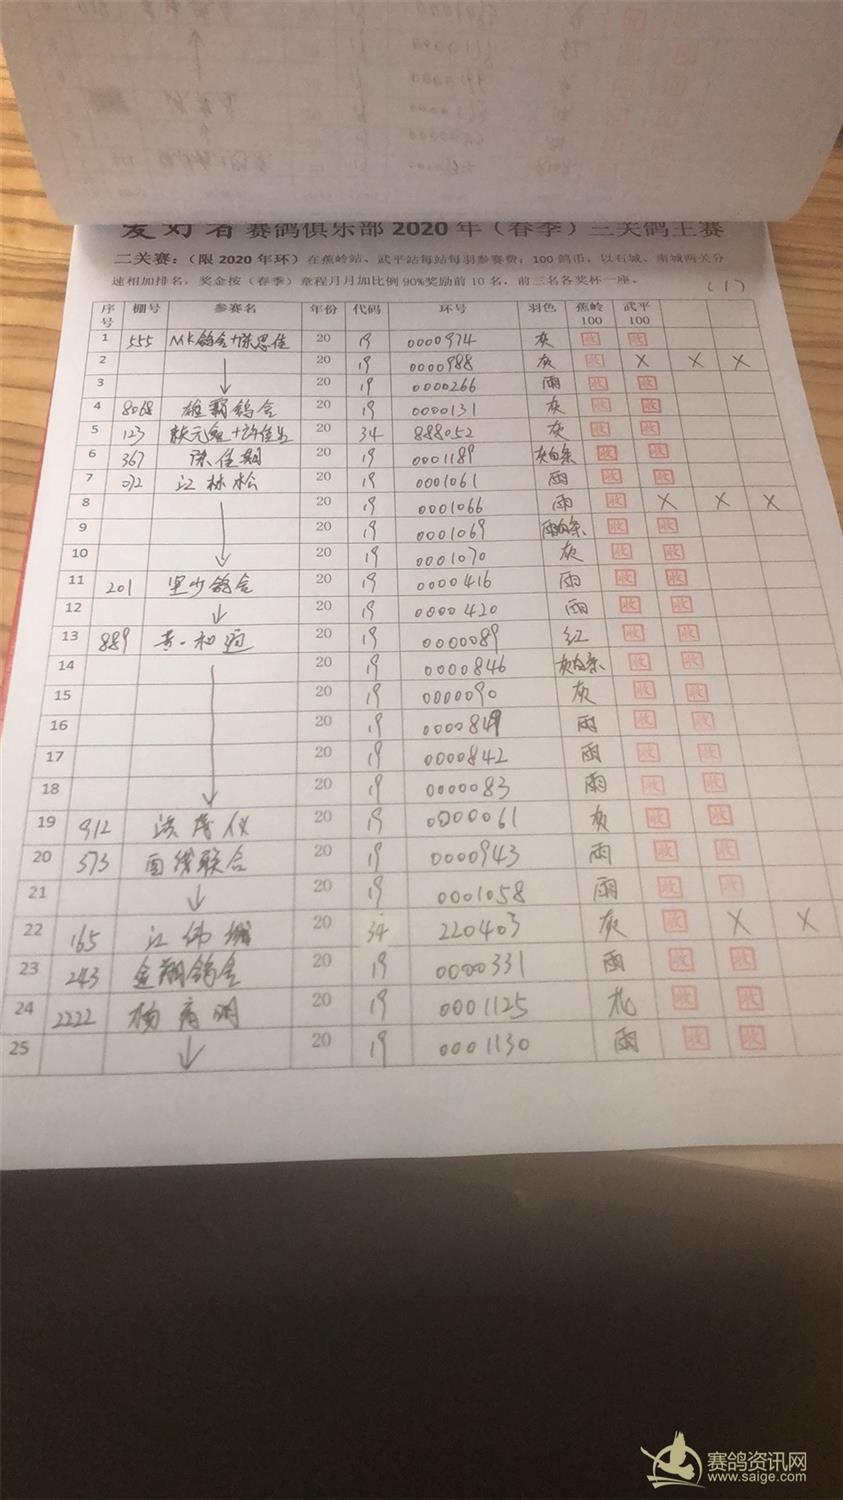 爱好者赛鸽俱乐部2020年（春季）三关鸽王赛
二关赛：（限2020年环）在蕉岭站、武平站每站每羽参赛费：100鸽币，以石城、南城两关分
速相加排名，奖金按（春季）章程月月加比例90%奖励前10名，前三名各奖杯一座。
(1)
序号 棚号 参赛名 年份 代码 环号 羽色 蕉岭100 武平100
1 555 MK鸽舍+陈思佳 20 19 0000974 灰 收 收
2 ↓ 20 19 0000988 灰 收 X X X
3 20 19 0000266 雨 收 收
4 8068 雄霸鸽舍 20 19 0000131 灰 收 收
5 123 20 34 888052 灰 收 收
6 367 陈佳期 20 19 0001189 灰白条 收 收
7 072 江林松 20 19 0001061 雨 收 收
8 ↓ 20 19 0001066 雨 收 X X X
9 20 19 0001069 雨白条 收 收
10 20 19 0001070 灰 收 收
11 201 坚少鸽舍 20 19 0000416 雨 收 收
12 ↓ 20 19 0000420 雨 收 收
13 889 20 19 0000089 红 收 收
14 ↓ 20 19 0000846 灰白条 收 收
15 20 19 0000090 灰 收 收
16 20 19 0000849 雨 收 收
17 20 19 0000842 雨 收 收
18 20 19 0000083 雨 收 收
19 912 洪茂仪 20 19 0000061 灰 收 收
20 573 面线联合 20 19 0000943 雨 收 收
21 ↓ 20 19 0001058 雨 收 收
22 165 20 34 220403 灰 收 X X
23 243 金翔鸽舍 20 19 0000331 雨 收 收
24 2222 20 19 0001125 花 收 收
25 ↓ 20 19 0001130 雨 收 收
赛鸽资讯网
www.saige.com